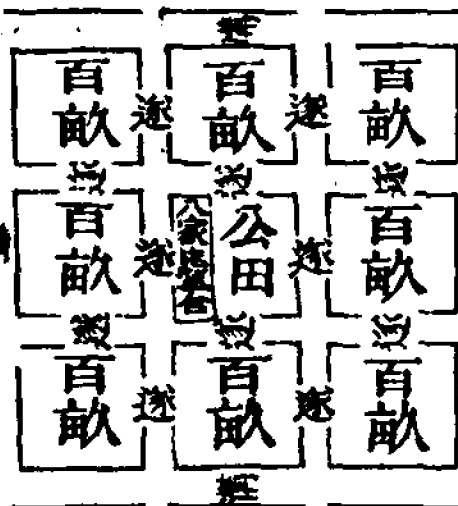 溝
百畝 遂 百畝 遂 百畝
遂 遂 遂
百畝 遂 公田 八家 遂 百畝
遂 遂 遂
百畝 遂 百畝 遂 百畝
溝